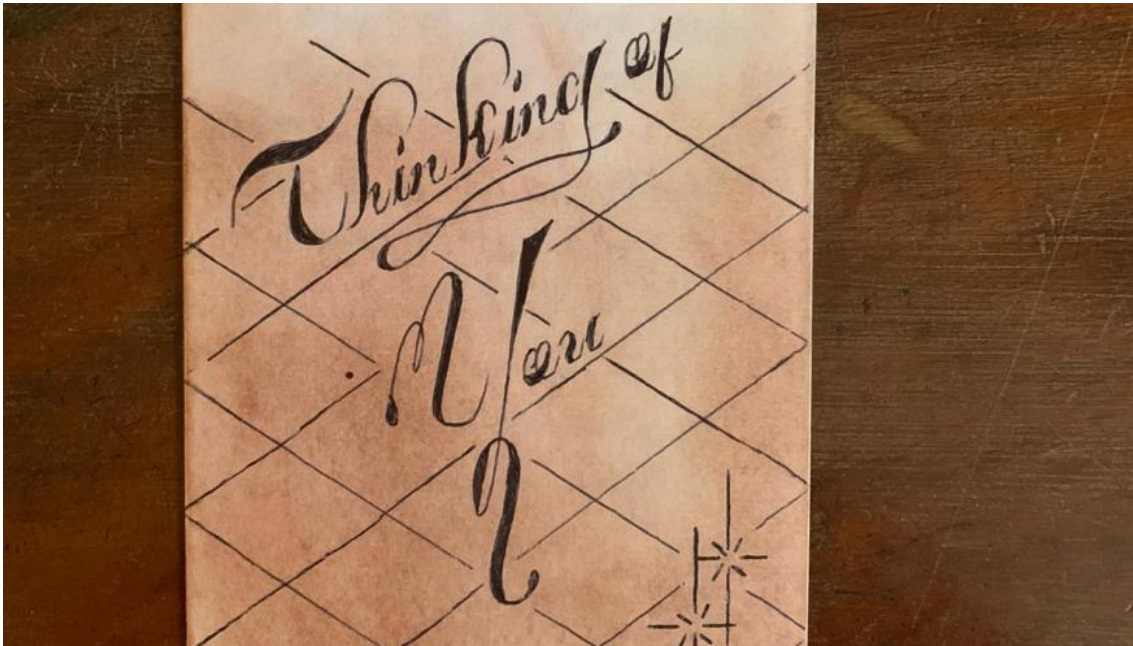 Thinking of
You